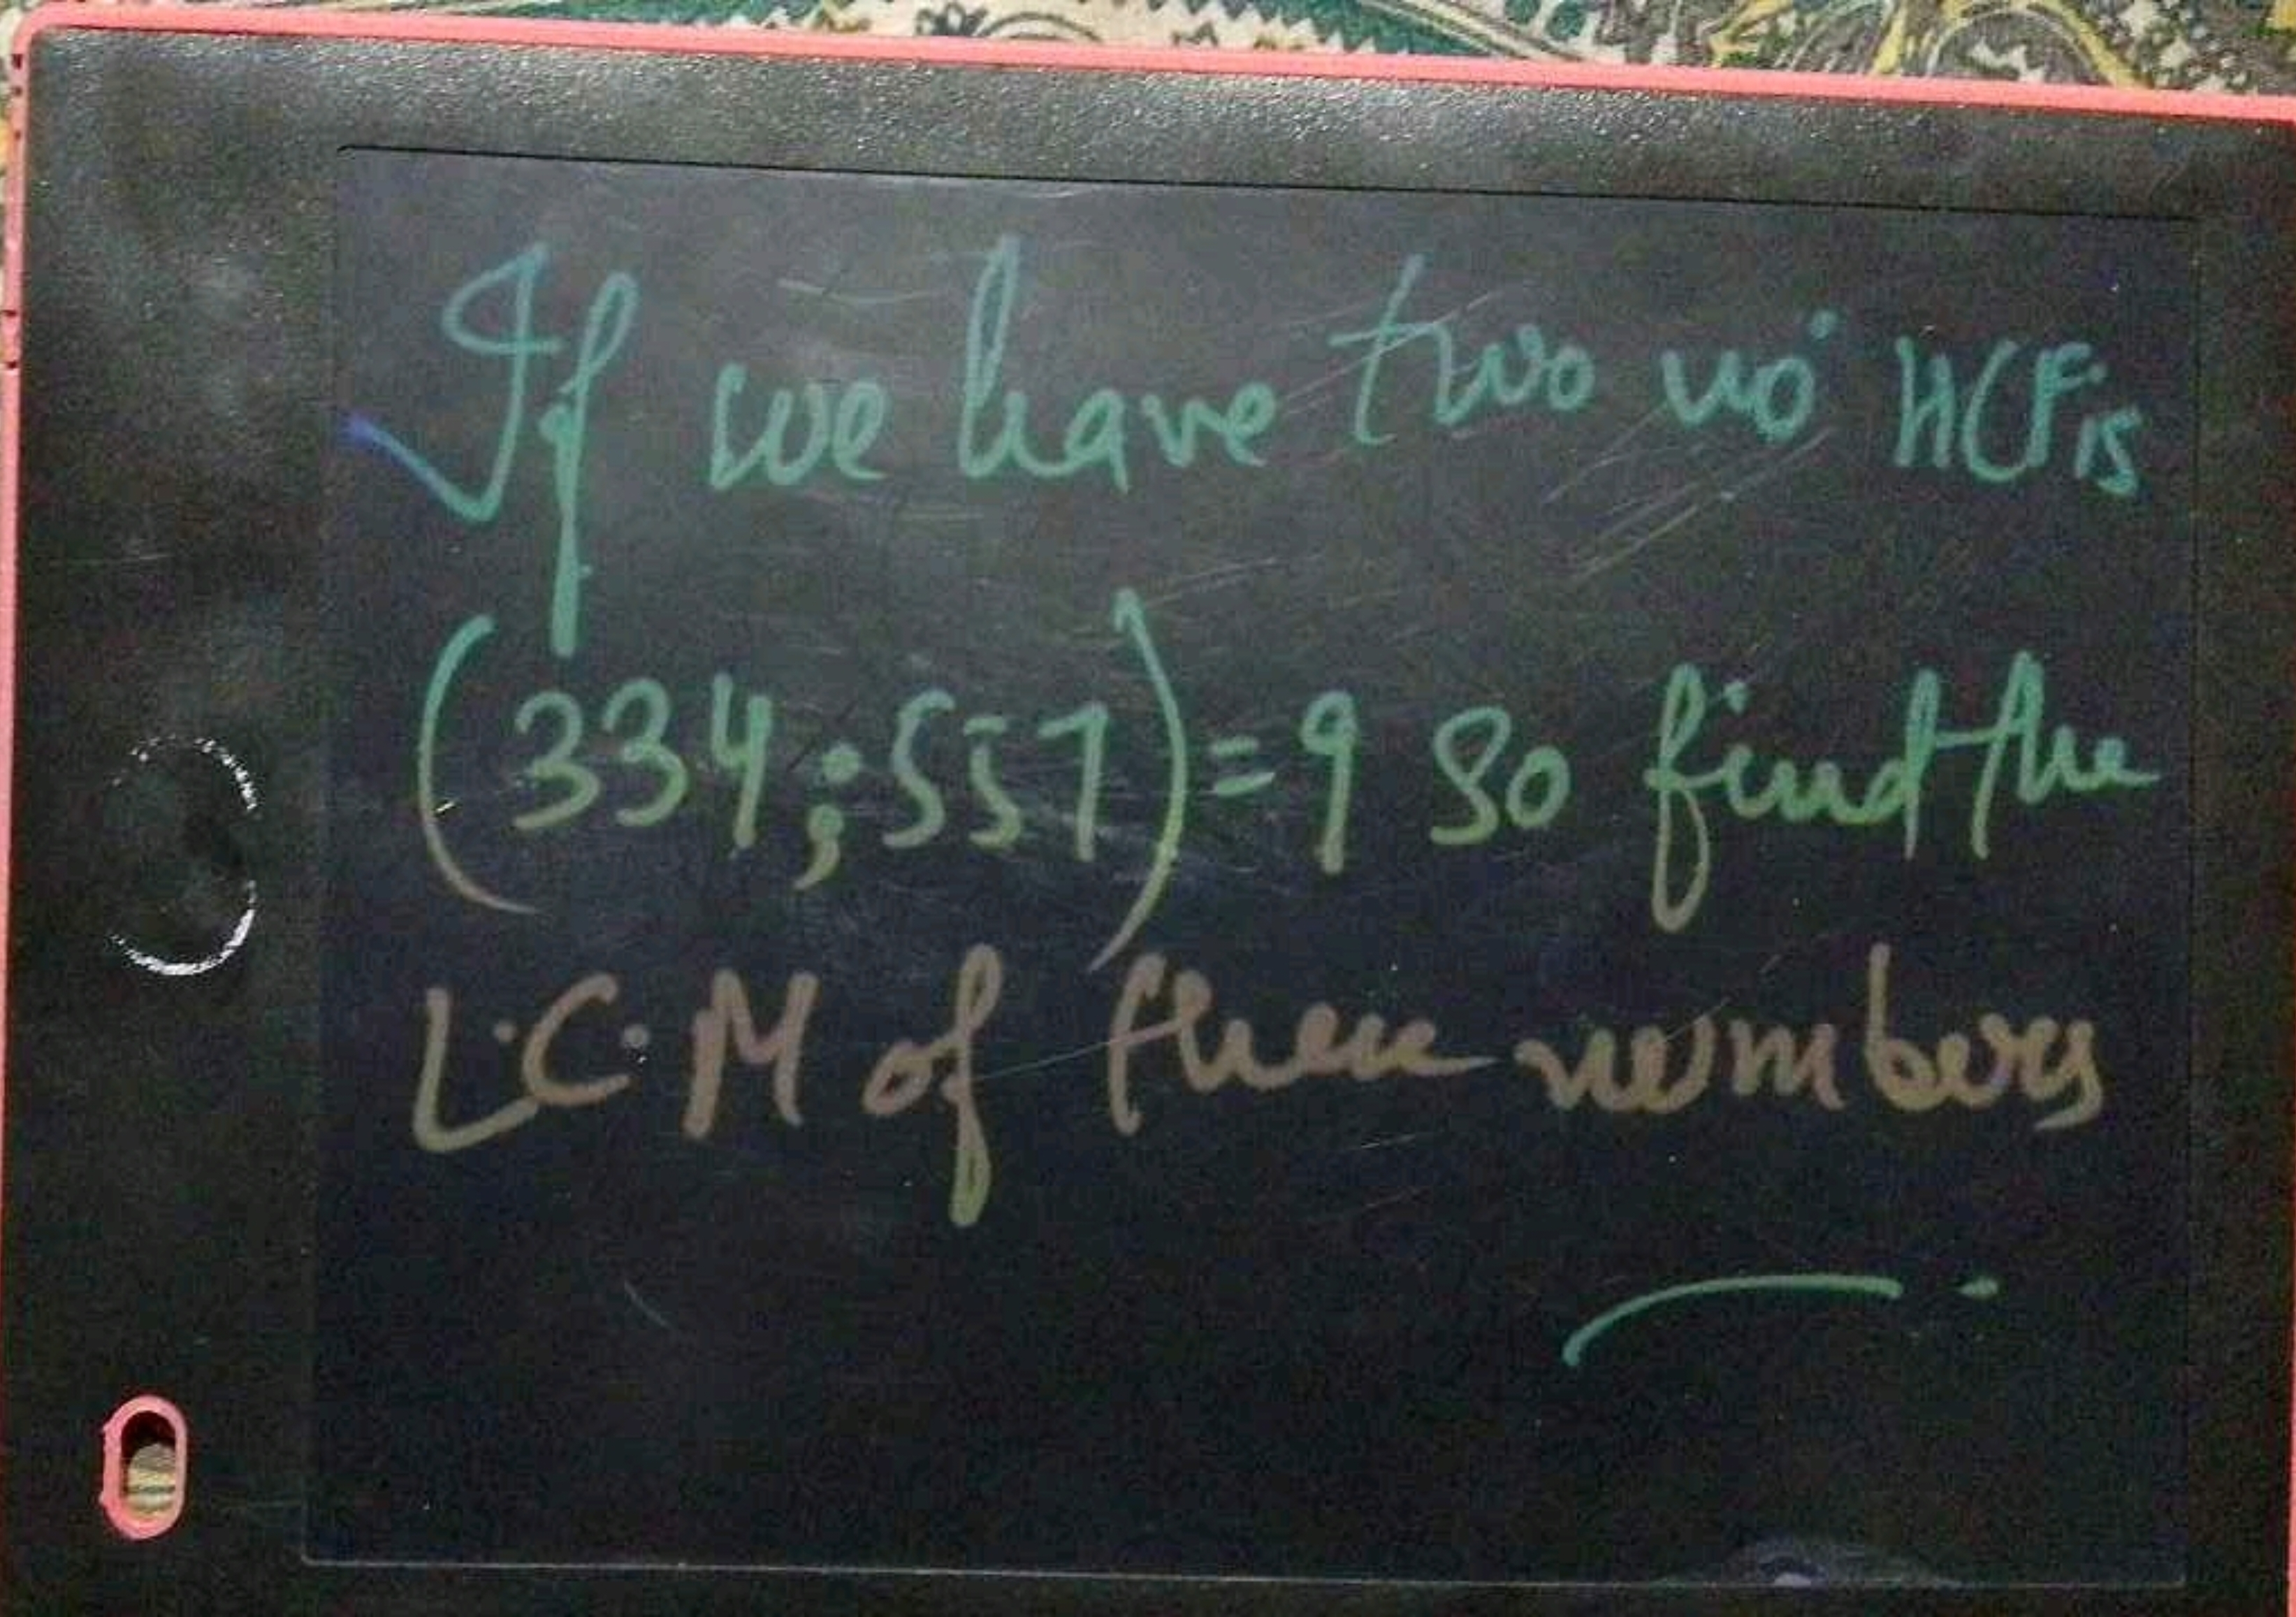 If we have two no. HCF is
(334;557) = 9 So find the
L.C.M of these numbers